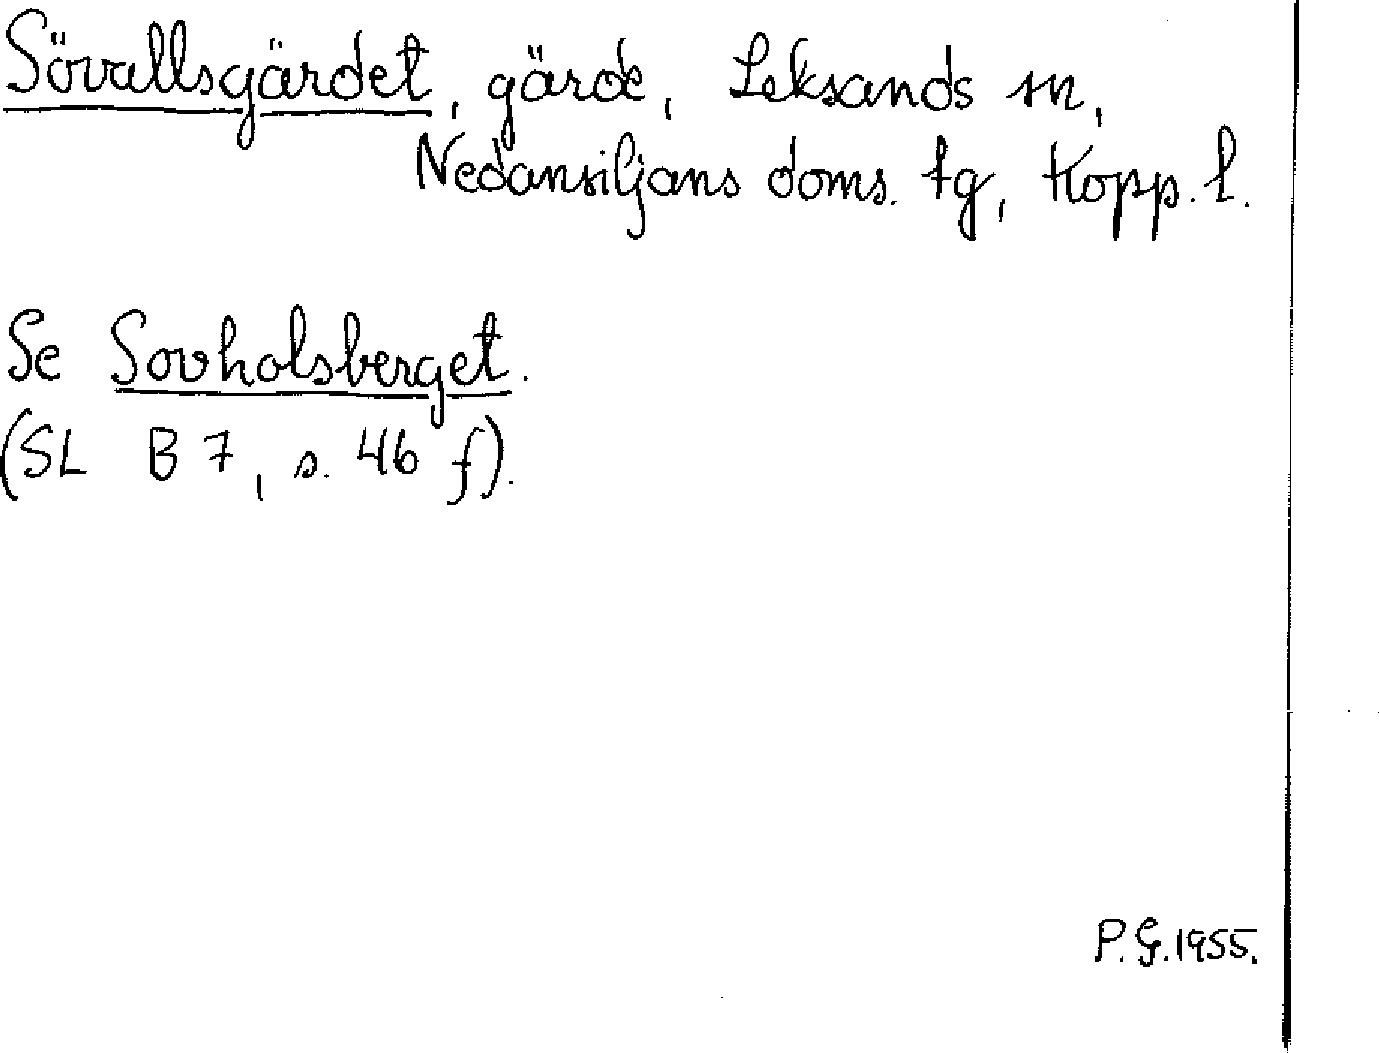 Sövallsgärdet, gärde, Leksands sn,
Nedansiljans doms. tg, Kopp. l.
Se Sovholsberget.
(SL B 7, s. 46 f).
P.G. 1955.